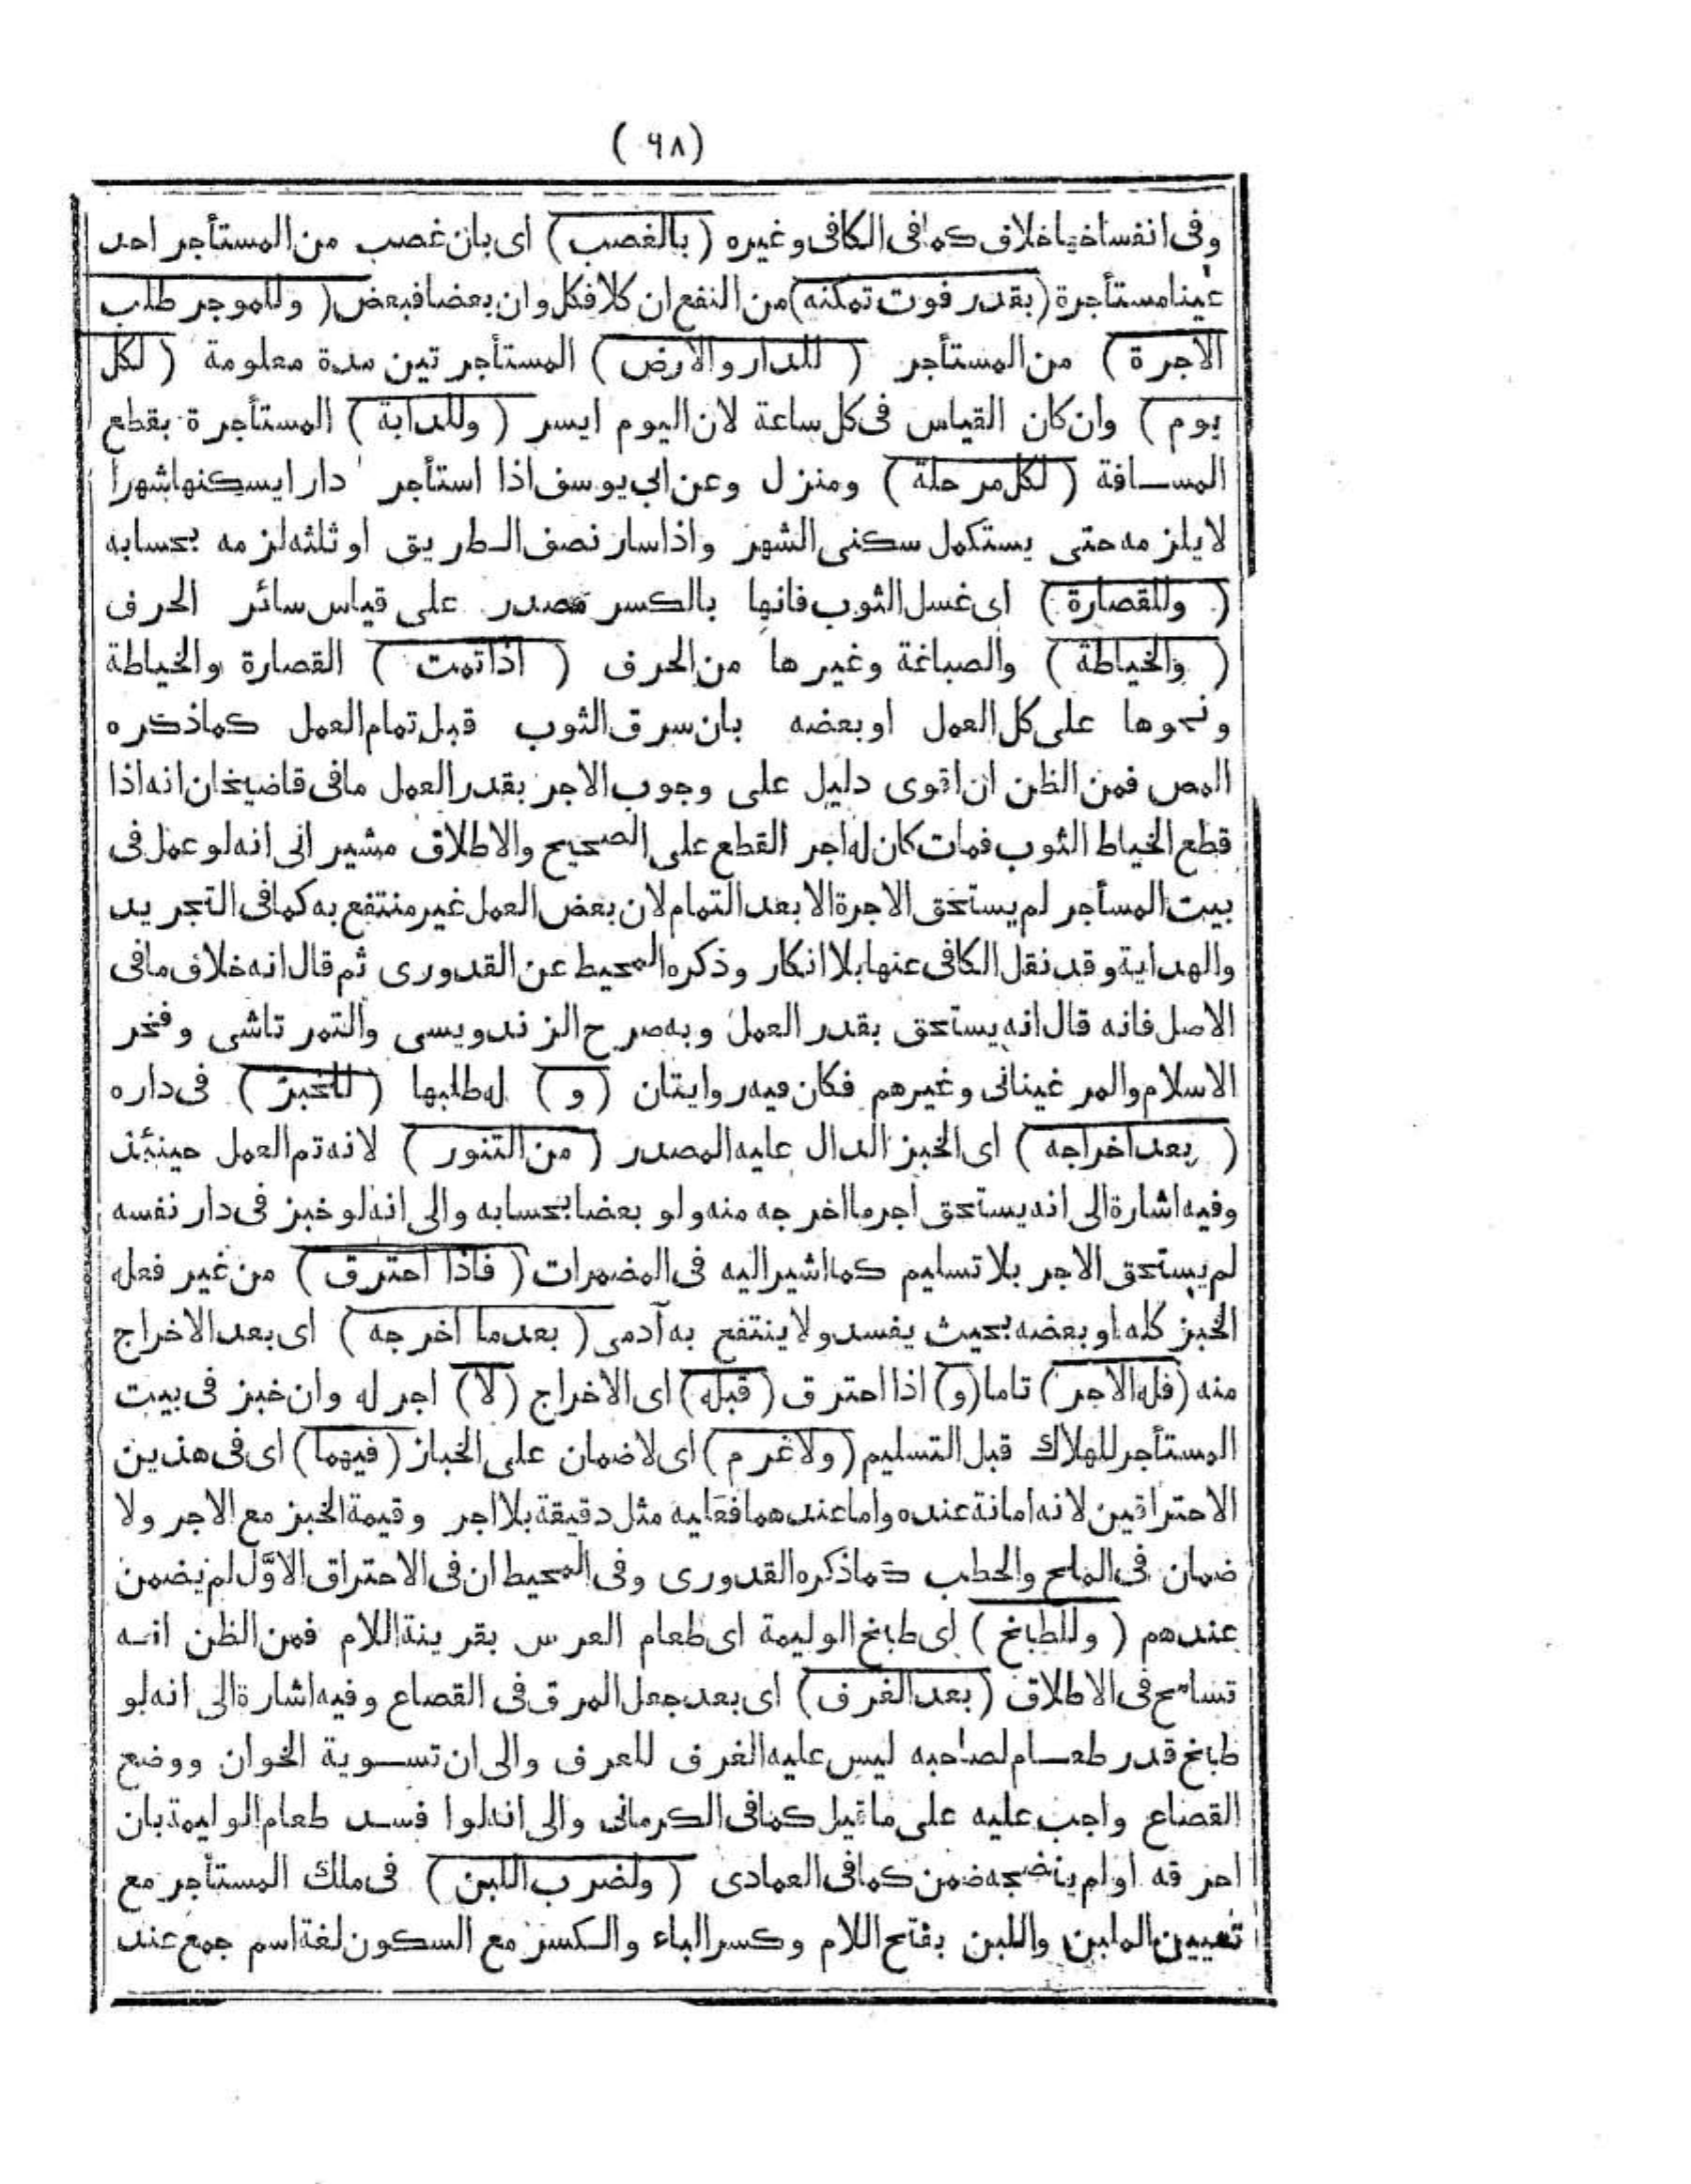 ( ٩٨ )
وفى انفساخها خلاف كما فى الكافى وغيره ( بالغصب ) اى بان غصب من المستأجر احد
عينا مستأجرة ( بقدر فوت تمكنه ) من النفع ان كلا فكل وان بعضا فبعض ( وللموجر طلب
الاجرة ) من المستأجر ( للدار والارض ) المستأجر تين مدة معلومة ( لكل
يوم ) وان كان القياس فى كل ساعة لان اليوم ايسر ( وللدابة ) المستأجرة بقطع
المسافة ( لكل مرحلة ) ومنزل وعن ابى يوسف اذا استأجر دارا يسكنها شهرا
لا يلزمه حتى يستكمل سكنى الشهر واذا سار نصف الطريق او ثلثه لزمه بحسابه
( وللقصارة ) اى غسل الثوب فانها بالكسر مصدر على قياس سائر الحرف
( والخياطة ) والصباغة وغيرها من الحرف ( اذا تمت ) القصارة والخياطة
ونحوها على كل العمل او بعضه بان سرق الثوب قبل تمام العمل كما ذكره
المص فمن الظن ان اقوى دليل على وجوب الاجر بقدر العمل ما فى قاضيخان انه اذا
قطع الخياط الثوب فمات كان له اجر القطع على الصحيح والاطلاق مشير الى انه لو عمل فى
بيت المسأجر لم يستحق الاجرة الا بعد التمام لان بعض العمل غير منتفع به كما فى التجريد
والهداية وقد نقل الكافى عنها بلا انكار وذكره المحيط عن القدورى ثم قال انه خلاف ما فى
الاصل فانه قال انه يستحق بقدر العمل وبه صرح الزندويسى والتمرتاشى وفخر
الاسلام والمرغينانى وغيرهم فكان فيه روايتان ( و ) له طلبها ( للخبز ) فى داره
( بعد اخراجه ) اى الخبز الدال عليه المصدر ( من التنور ) لانه تم العمل حينئذ
وفيه اشارة الى انه يستحق اجر ما اخرجه منه ولو بعضا بحسابه والى انه لو خبز فى دار نفسه
لم يستحق الاجر بلا تسليم كما اشير اليه فى المضمرات ( فاذا احترق ) من غير فعله
الخبز كله او بعضه بحيث يفسد ولا ينتفع به آدمى ( بعد ما اخرجه ) اى بعد الاخراج
منه ( فله الاجر ) تاما ( و ) اذا احترق ( قبله ) اى الاخراج ( لا ) اجر له وان خبز فى بيت
المستأجر للهلاك قبل التسليم ( ولا غرم ) اى لا ضمان على الخباز ( فيهما ) اى فى هذين
الاحتراقين لانه امانة عنده واما عندهما فعليه مثل دقيقة بلا اجر وقيمة الخبز مع الاجر ولا
ضمان فى الملح والحطب كما ذكره القدورى وفى المحيط ان فى الاحتراق الاوّل لم يضمن
عندهم ( وللطبخ ) اى طبخ الوليمة اى طعام العرس بقرينة اللام فمن الظن انه
تسامح فى الاطلاق ( بعد الغرف ) اى بعد جعل المرق فى القصاع وفيه اشارة الى انه لو
طبخ قدر طعام لصاحبه ليس عليه الغرف للعرف والى ان تسوية الخوان ووضع
القصاع واجب عليه على ما قيل كما فى الكرمانى والى انه لوا فسد طعام الوليمة بان
احرقه او لم ينضجه ضمن كما فى العمادى ( ولضرب اللبن ) فى ملك المستأجر مع
تعيين الملبن واللبن بفتح اللام وكسر الباء والكسر مع السكون لغة اسم جمع عند